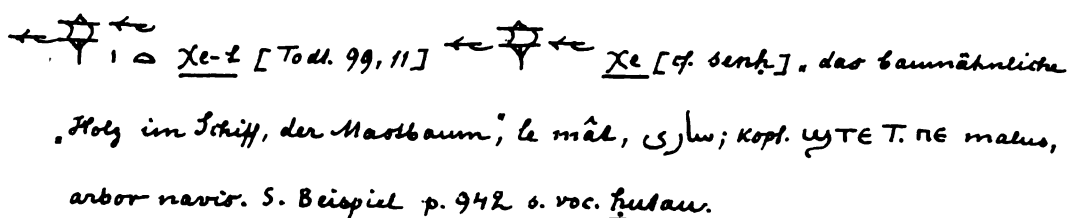 χe-t [Todt. 99, 11] χe [cf. senḥ]. das baumähnliche
„Holz im Schiff, der Mastbaum", le mât, سارى; kopt. ϣⲧⲉ ⲧ. ⲡⲉ malus,
arbor navis. S. Beispiel p. 942 s. voc. ḥutau.